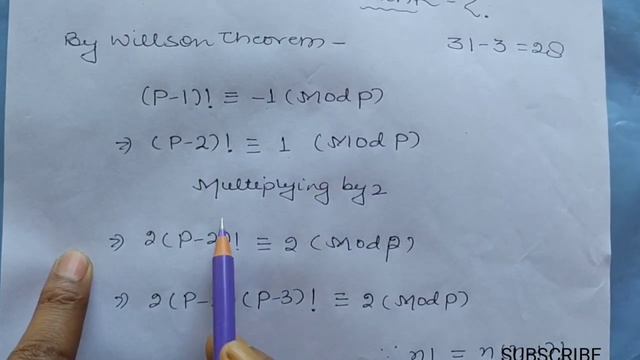 By Willson Theorem - 31-3 = 28
(P-1)! ≡ -1 (Mod P)
⇒ (P-2)! ≡ 1 (Mod P)
Multiplying by 2
⇒ 2(P-2)! ≡ 2 (Mod P)
⇒ 2(P- (P-3)! ≡ 2 (Mod P)
∵ n! =
SUBSCRIBE